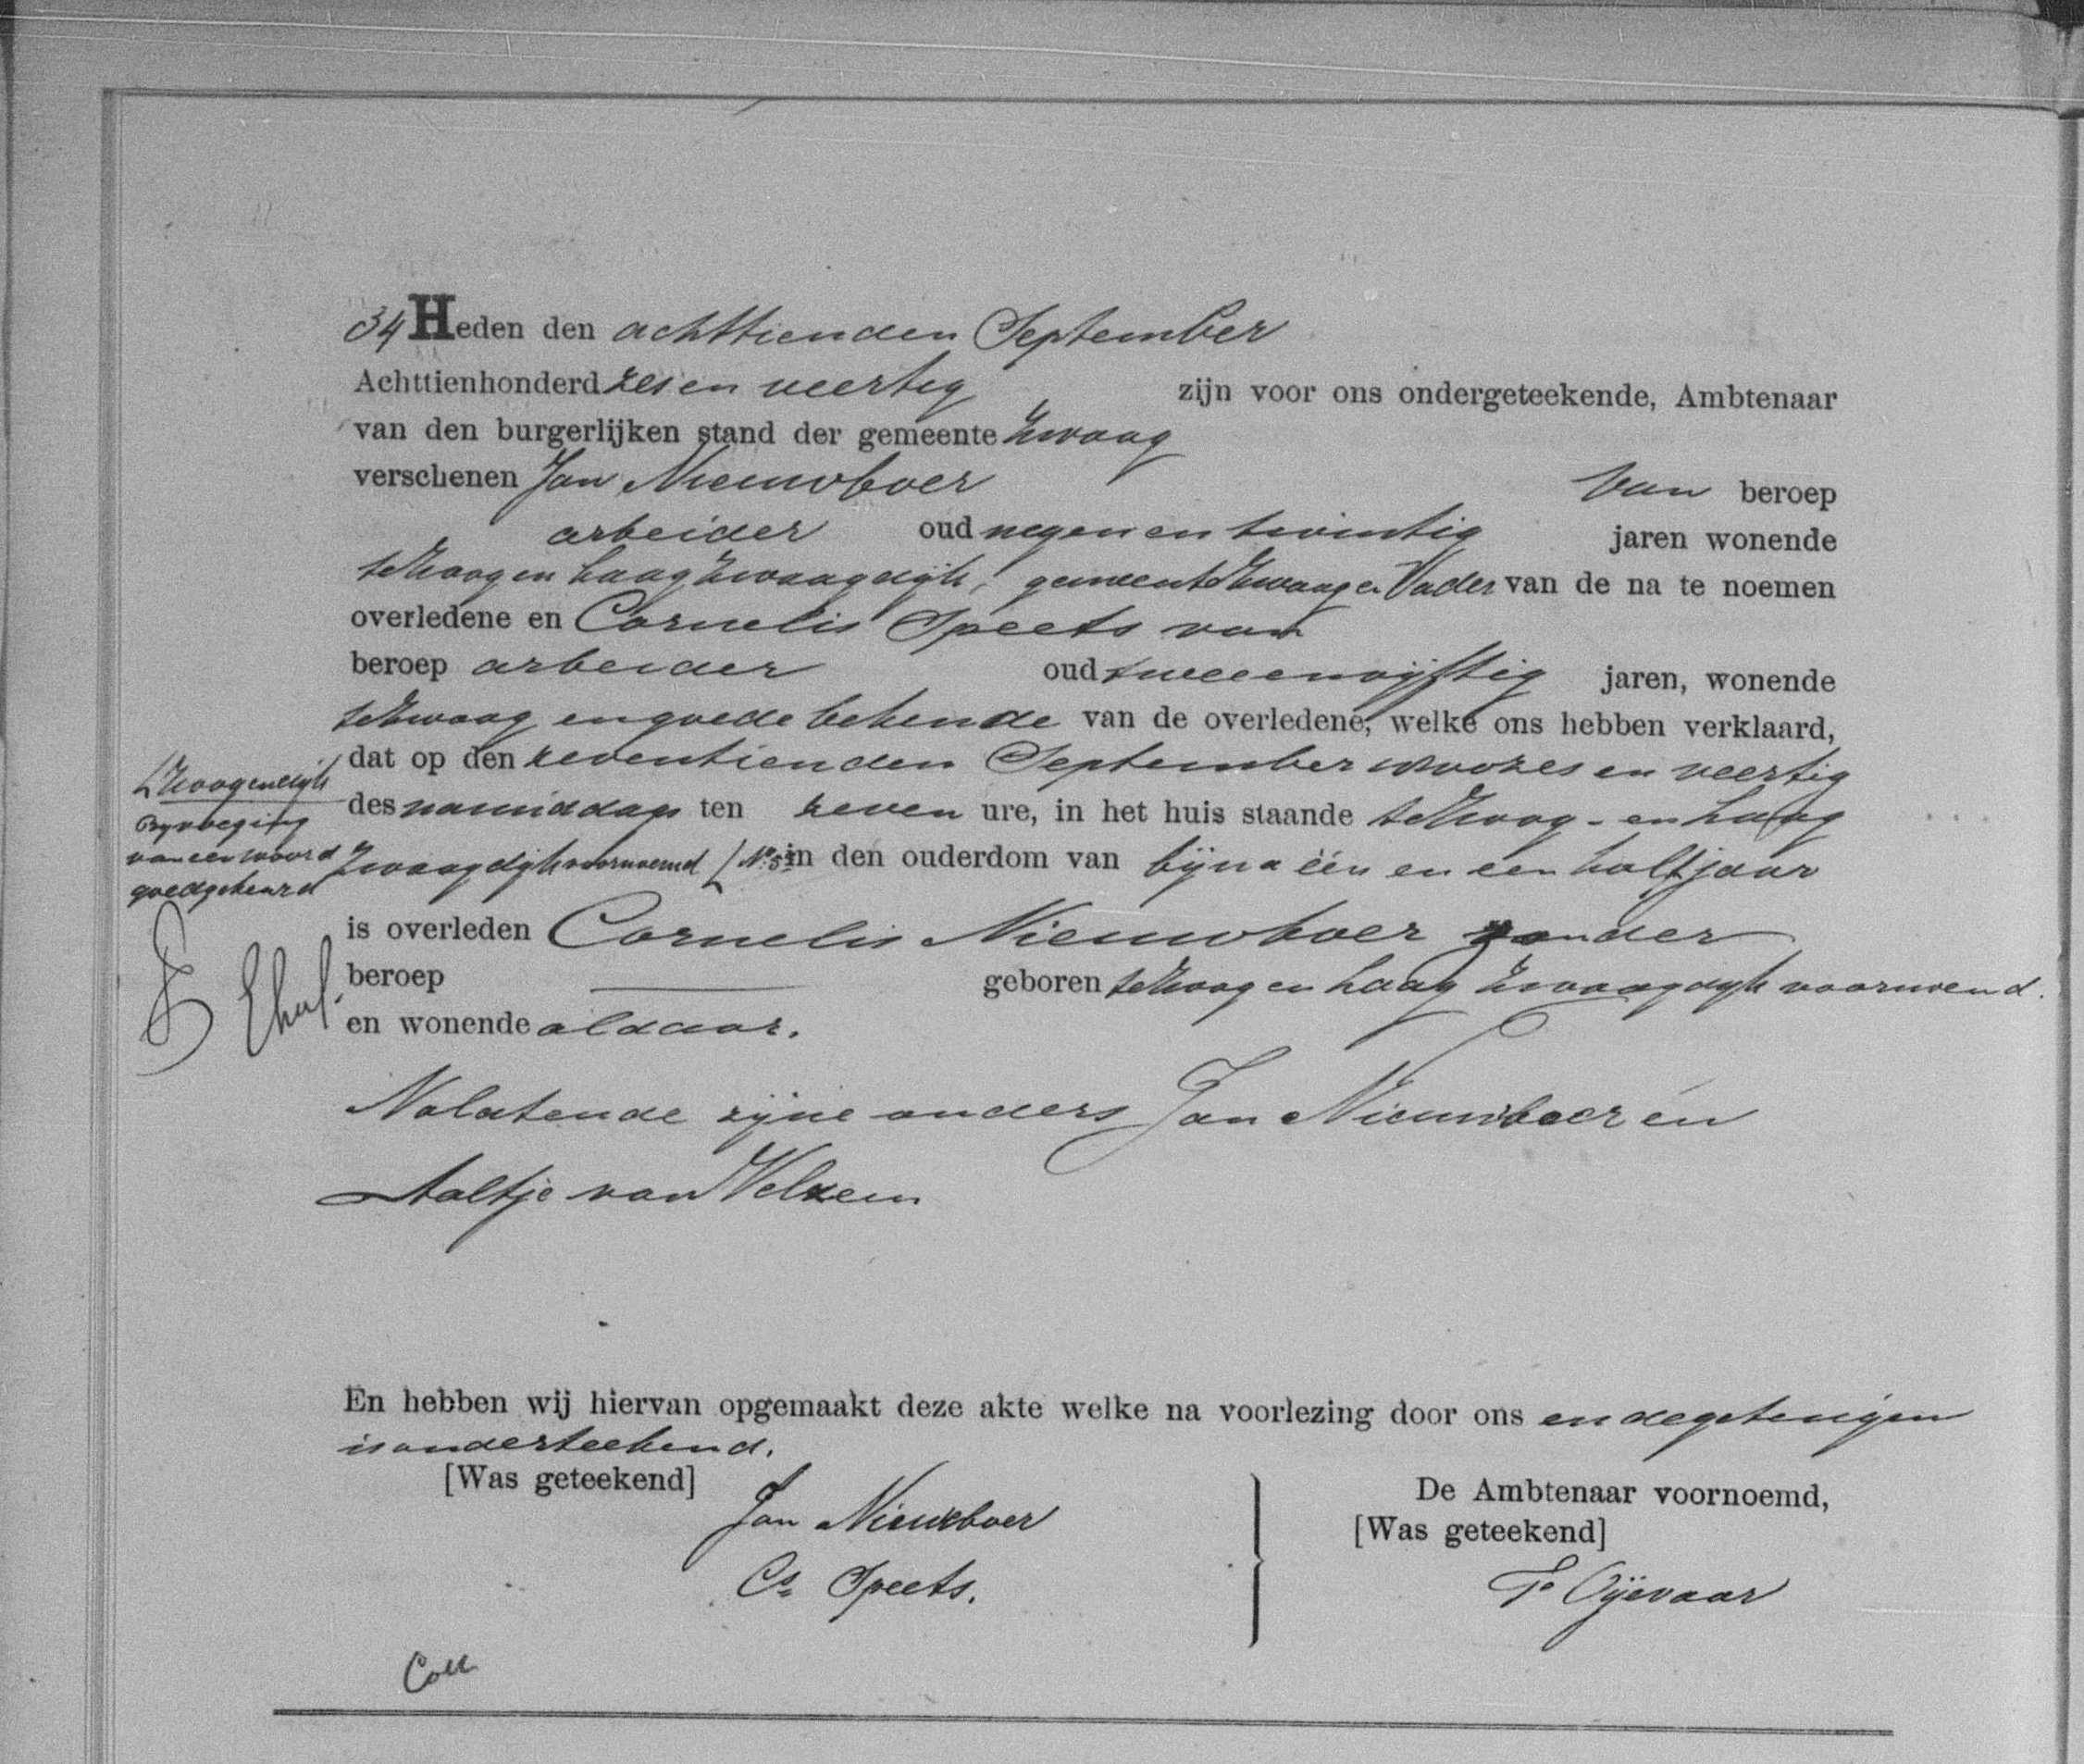 34 Heden den achttienden September
Achttienhonderd zes en veertig zijn voor ons ondergeteekende, Ambtenaar
van den burgerlijken stand der gemeente Zwaag
verschenen Jan Nieuwboer van beroep
arbeider oud negen en twintig jaren wonende
te Hoog en Laag Zwaagdijk, gemeente Zwaag en Vader van de na te noemen
overledene en Cornelis Speets van
beroep arbeider oud twee en vijftig jaren, wonende
te Zwaag en goede bekende van de overledene, welke ons hebben verklaard,
dat op den zeventienden September zes en veertig
des namiddags ten zeven ure, in het huis staande te Hoog- en Laag
Zwaagdijk voornoemd [ No. in den ouderdom van bijna één en een half jaar
Byvoeging
van een woord
goedgekeurd
is overleden Cornelis Nieuwboer zonder
beroep ——— geboren te Hoog en Laag Zwaagdijk voornoemd.
en wonende aldaar.
Nalatende zijne ouders Jan Nieuwboer en
Aaltje van Velzen
En hebben wij hiervan opgemaakt deze akte welke na voorlezing door ons en de getuigen
is onderteekend.
[Was geteekend] De Ambtenaar voornoemd,
Jan Nieuwboer [Was geteekend]
Cs Speets. P. Oijevaar
Coll